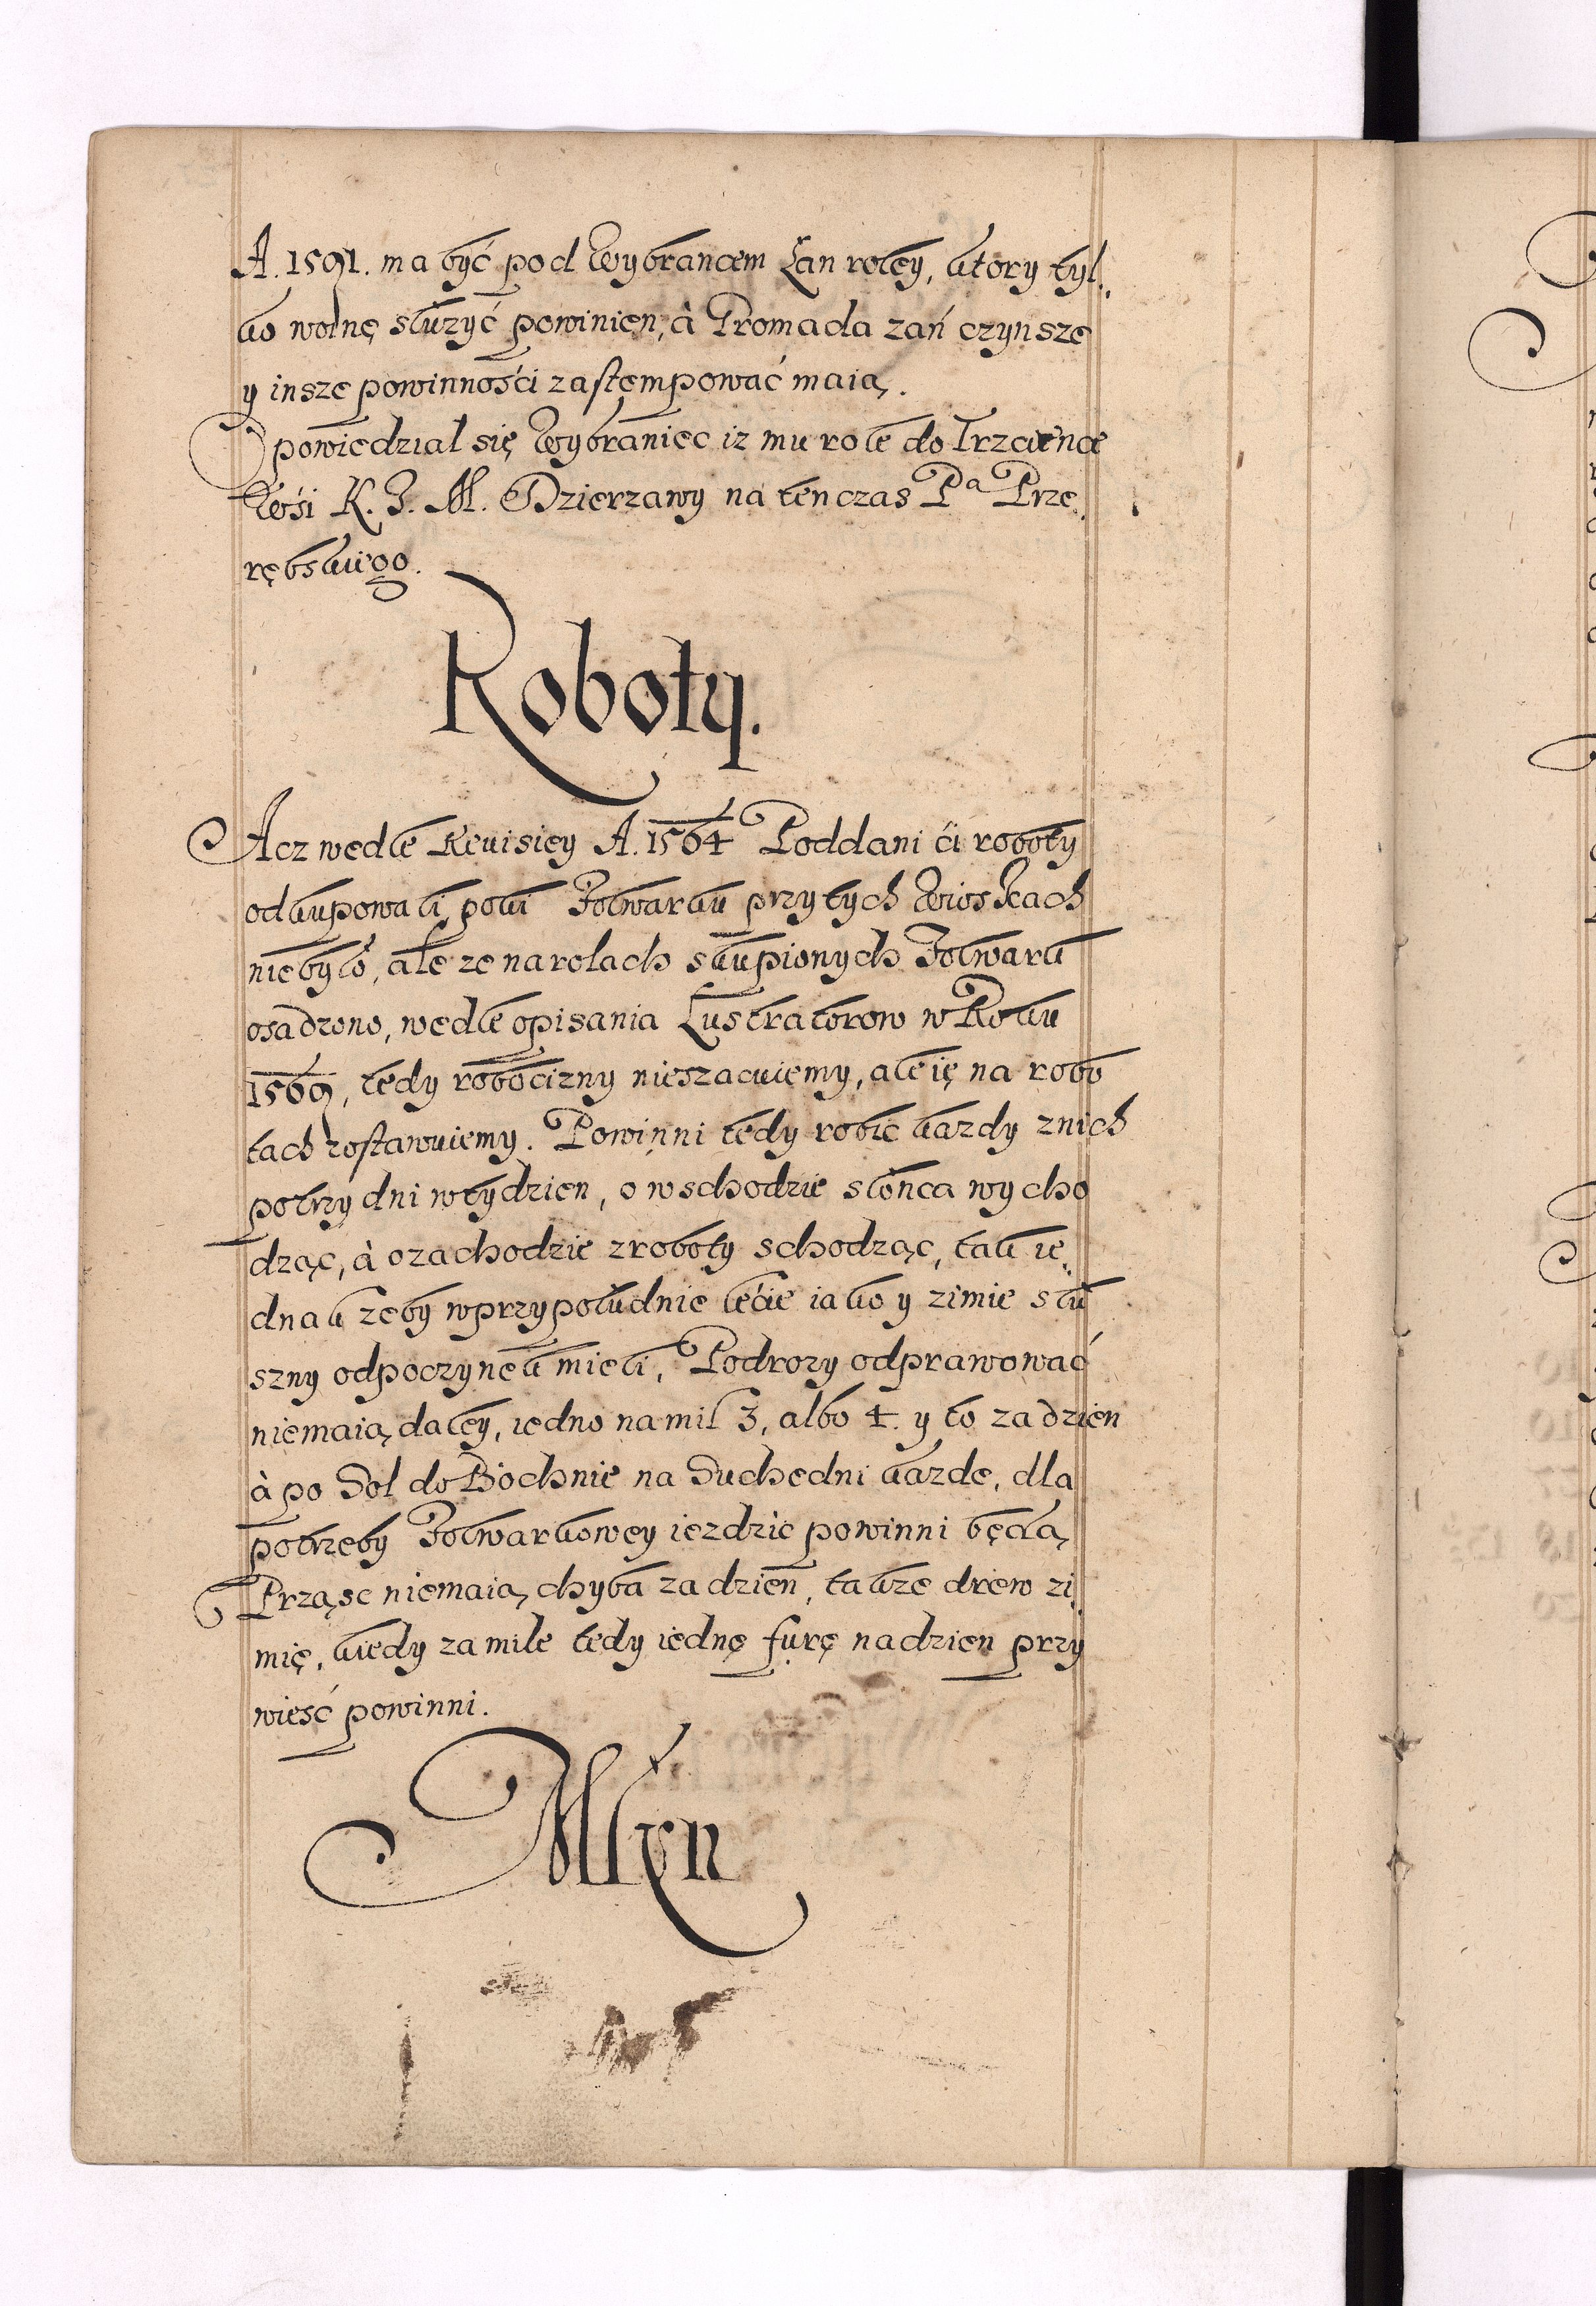 A. 1591. ma być pod Wybrancem Łan roley, ktory tyl„
ko wolnę służyć powinien, à Gromada zań czynsze
y insze powinnośći zastempować maią.
Opowiedział się Wybraniec iz mu role do Trzcience
Wśi K. J. M. Dzierzawy na ten czas Pa Prze„
rębskiego.
Roboty.
Acz wedle Reuisiey A. 1564 Poddani ći roboty
odkupowali, poki Folwarku przy tych Wioskach
nie było, ale ze na rolach skupionych Folwark
osadzono, wedle opisania Lustratorow w Roku
1569, tedy robocizny nieszacuiemy, ale ię na robo
tach zostawuiemy. Powinni tedy robic kazdy z nich
po trzy dni w tydzien, o wschodzie słońca wycho
dząc, à o zachodzie z roboty schodząc, tak ie„
dnak zeby w przypołudnie lećie iako y zimie słu
szny odpoczynek mieli, Podrozy odprawować
niemaią daley, iedno na mil 3, albo 4. y to za dzien
à po Sol do Bochnie na Suchedni kazde, dla
potrzeby Folwarkowey iezdzic powinni będą,
Prząsc niemaią, chyba za dzien, takze drew zi„
mię, kiedy za mile tedy iednę furę na dzien przy
wieść powinni.
Młyn